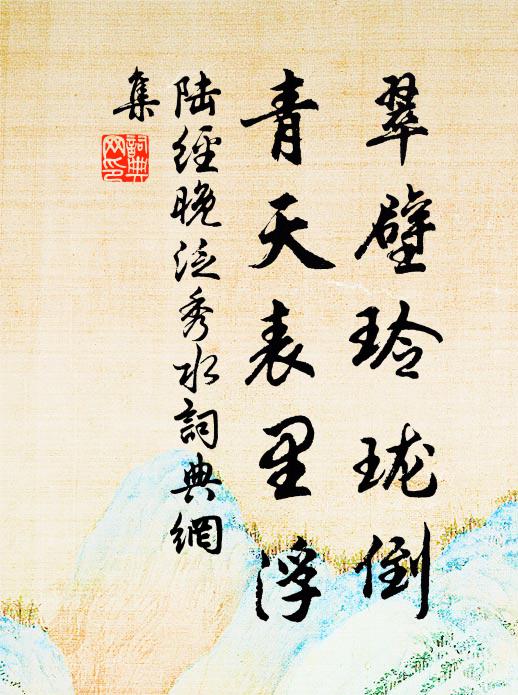 翠壁玲珑倒
青天表里浮
陆经晚泛秀水詞典網
集
詞典网印